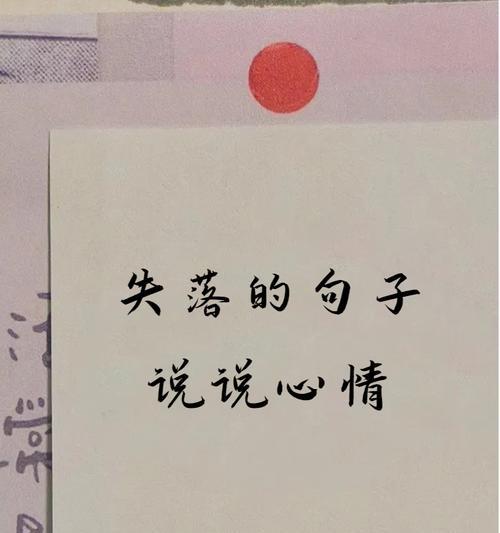 失落的句子
说说心情